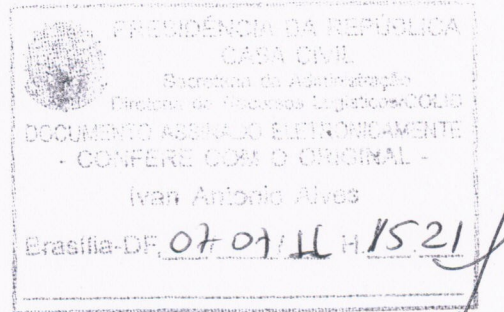 PRESIDÊNCIA DA REPÚBLICA
CASA CIVIL
Secretaria de Administração
Diretoria de Recursos Logísticos/COLIC
DOCUMENTO ASSINADO ELETRONICAMENTE
- CONFERE COM O ORIGINAL -
Ivan Antonio Alves
Brasília-DF, 07 07/ 11 H 15 21